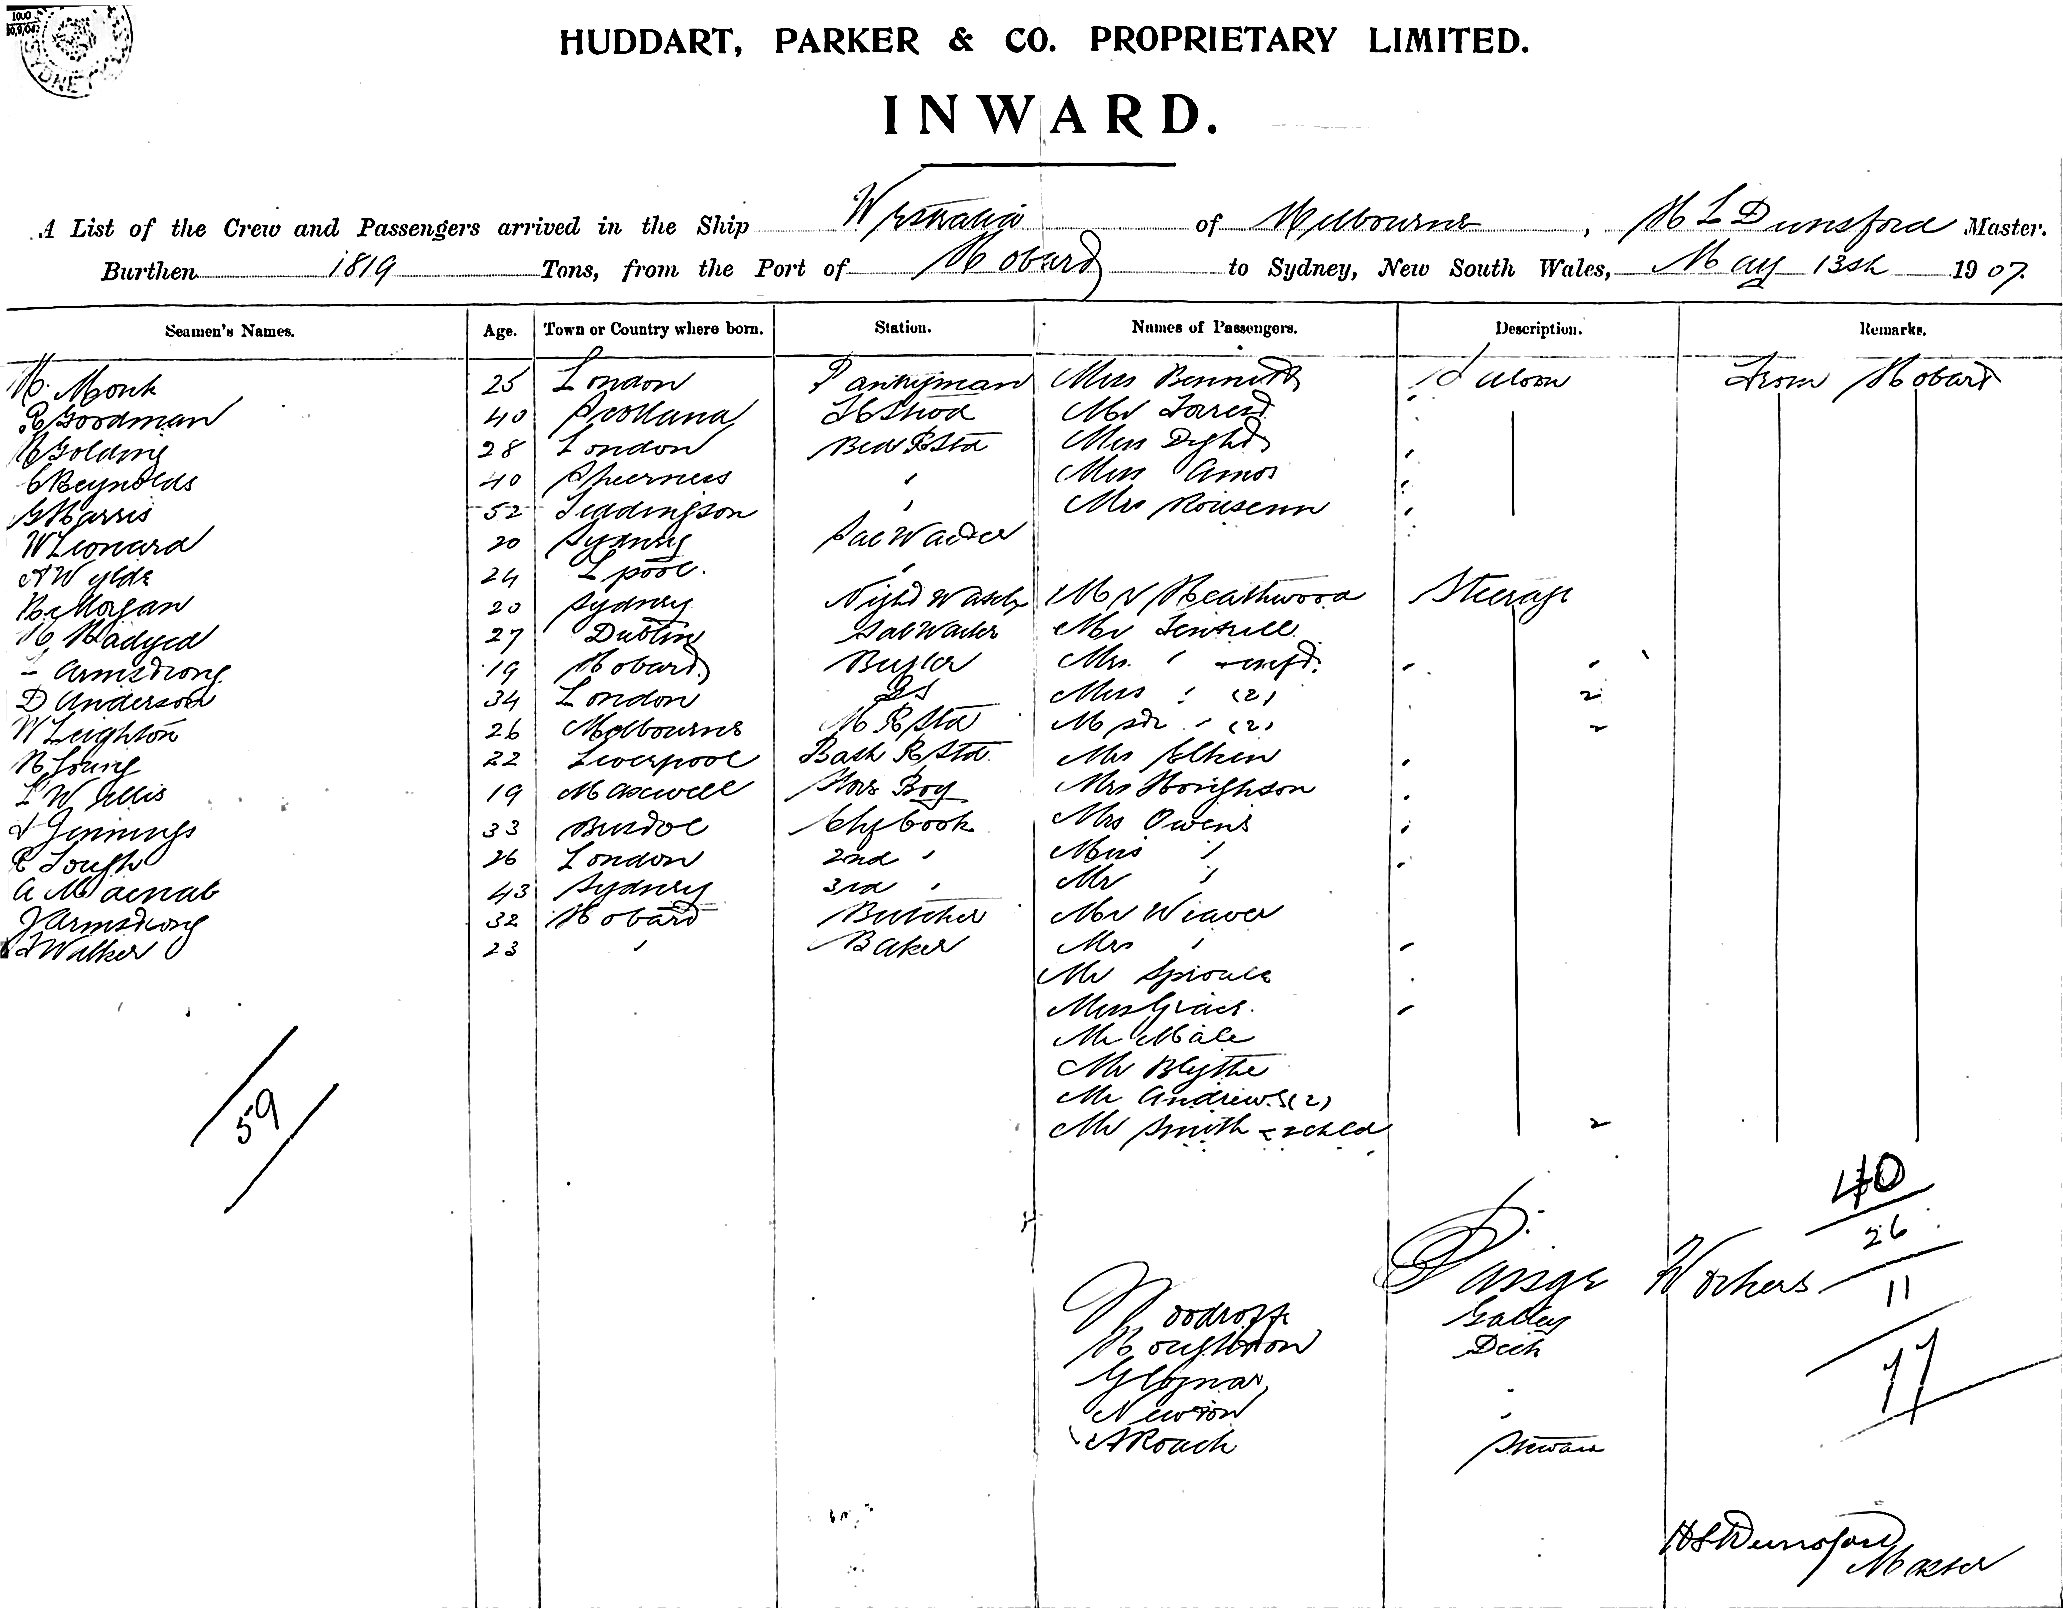 HUDDART, PARKER & CO. PROPRIETARY LIMITED.
INWARD.
A List of the Crew and Passengers arrived in the Ship Westralia of Melbourne, H L Dunsford Master.
Burthen 1819 Tons, from the Port of Hobart to Sydney, New South Wales, May 13th 1907.
Seamen's Names. Age. Town or Country where born. Station. Names of Passengers. Description. Remarks.
H. Monk 25 London Pantryman Miss Bennett Saloon From Hobart
R Goodman 40 Scotland Mr Forrest
H Golding 28 London Bed R Std Miss Dight
C Reynolds 40 Sheerness " Miss Amos
G Harris 52 Teddington " Mrs
W Leonard 20 Sydney Sal Waiter
A Wylde 24 L'pool. "
B Morgan 20 Sydney Night Watch Mr Heathwood Steerage
H 27 Dublin Sal Waiter Mr
- Armstrong 19 Hobart Mrs. " + inft.
D Anderson 34 London Miss " (2) 2
W Leighton 26 Melbourne R Std Mstr " (2) 2
H Young 22 Liverpool Bath R Std. Mrs
L W Ellis 19 Maxwell Store Boy Mrs Houghton
Jennings 33 Chf Cook Mrs Owens
R Tough 26 London 2nd " Miss "
A Macnab 43 Sydney 3rd " Mr "
J Armstrong 32 Hobart Butcher Mr Weaver
Walker 23 " Baker Mrs "
Mr Sproule
Miss Grace.
Mr Male
Mr Blythe
Mr Andrews (2)
Mr Smith & 2 chld 2
59
40
26
Passge Workers 11
77
Woodroffe Galley
Houghton Deck
"
Newton "
A Roach Steward
H L Dunsford
Master